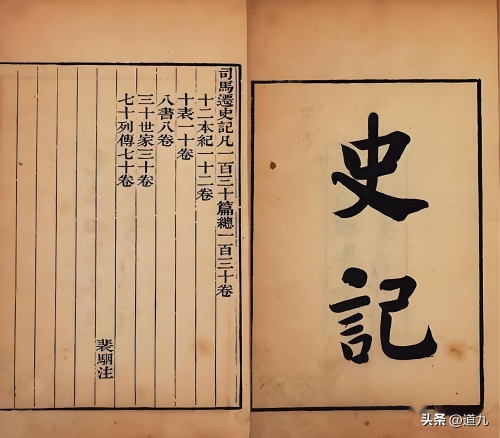 史記
司馬遷史記凡一百三十篇總一百三十卷
十二本紀一十二卷
十表一十卷
八書八卷
三十世家三十卷
七十列傳七十卷
裴駰注
头条 @道九